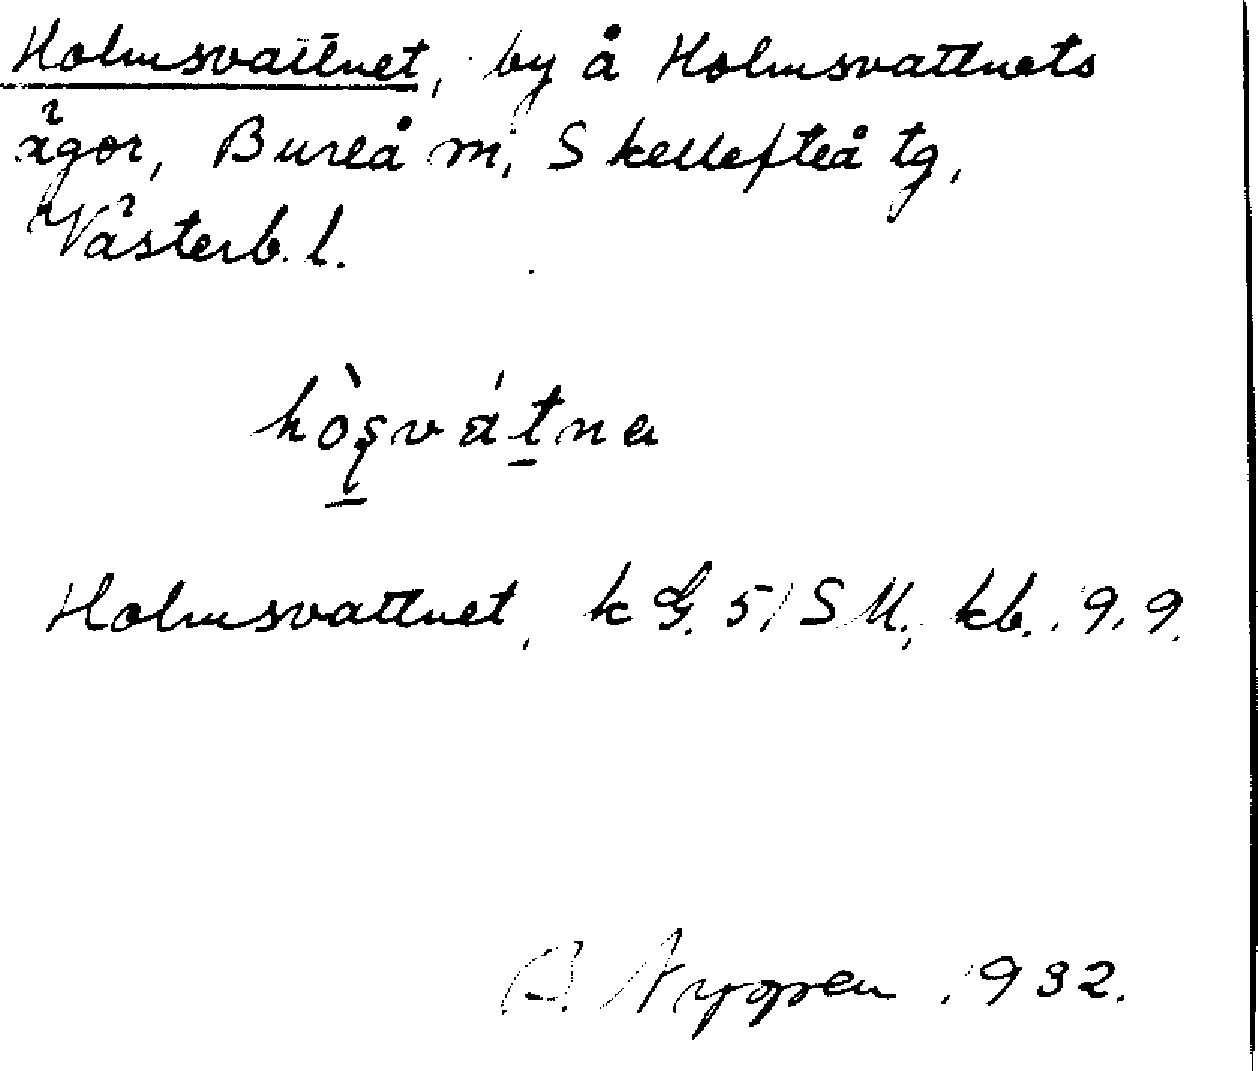 Holmsvattnet, by å Holmsvattnets
ägor, Bureå m, Skellefteå tg,
Västerb. l.
hòs̱vát̠na
Holmsvattnet, k G. 51 S M, kb. 9.9.
B. Nygren 1932.